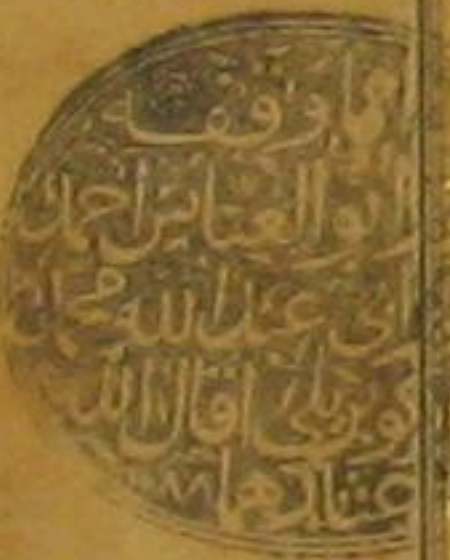 ما وقفه
ابو العباس احمد
ابى عبد الله محمد
كوبريلى اقال الله
عثارهما